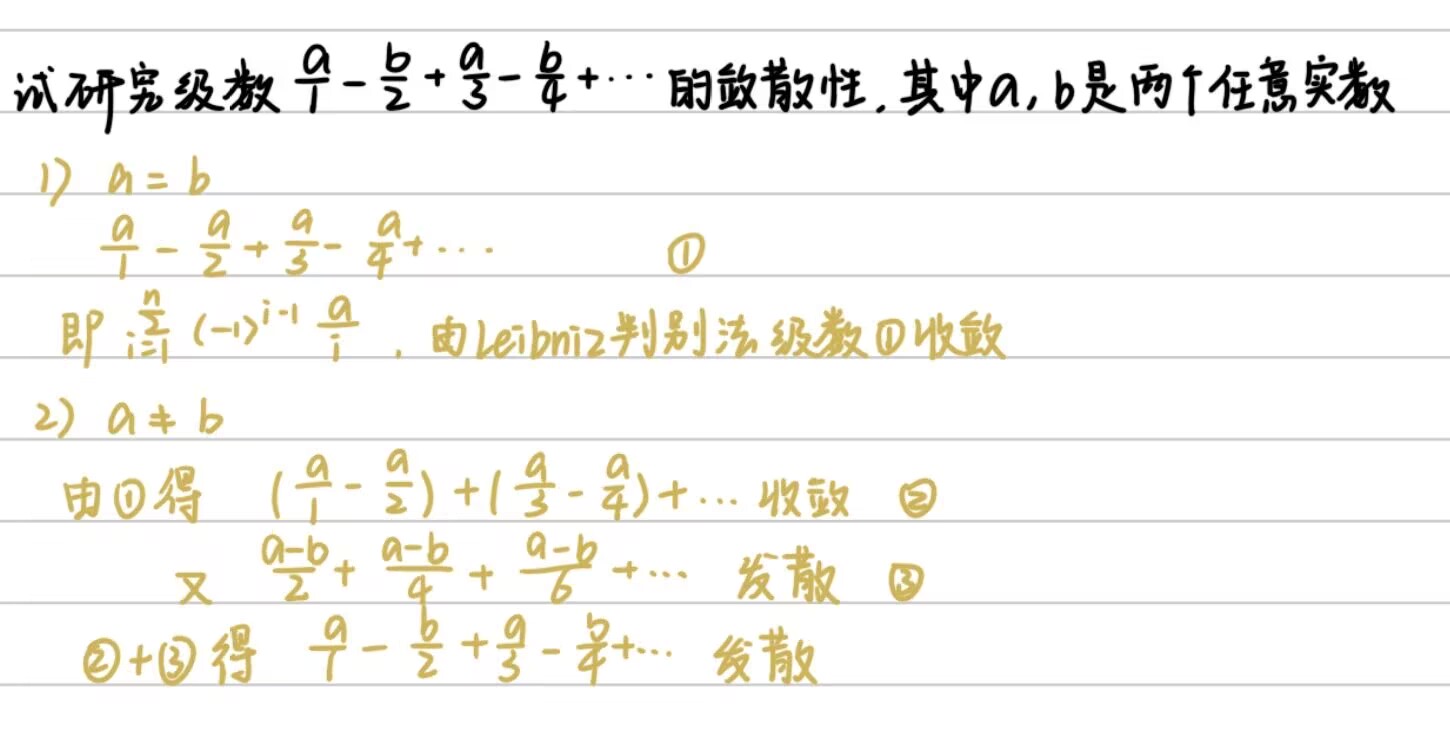 试研究级数 a/1 - b/2 + a/3 - b/4 + ⋯ 的敛散性，其中a, b是两个任意实数
1) a = b
a/1 - a/2 + a/3 - a/4 + ⋯ ①
即 ∑_{i=1}^{n} (-1)^{i-1} a/i . 由Leibniz判别法级数①收敛
2) a ≠ b
由①得 (a/1 - a/2) + (a/3 - a/4) + ⋯ 收敛 ②
又 (a-b)/2 + (a-b)/4 + (a-b)/6 + ⋯ 发散 ③
②+③得 a/1 - b/2 + a/3 - b/4 + ⋯ 发散